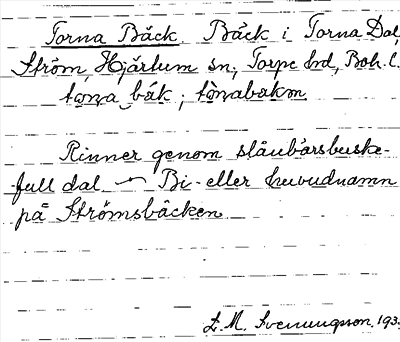 Torna Bäck. Bäck i Torna Dal,
Ström, Hjärtum sn, Torpe hd, Boh. l.
tona bäk ; tonabakın
Rinner genom slånbärsbuske-
full dal — Bi- eller huvudnamn
på Strömsbäcken
L. M. Svenungsson, 193